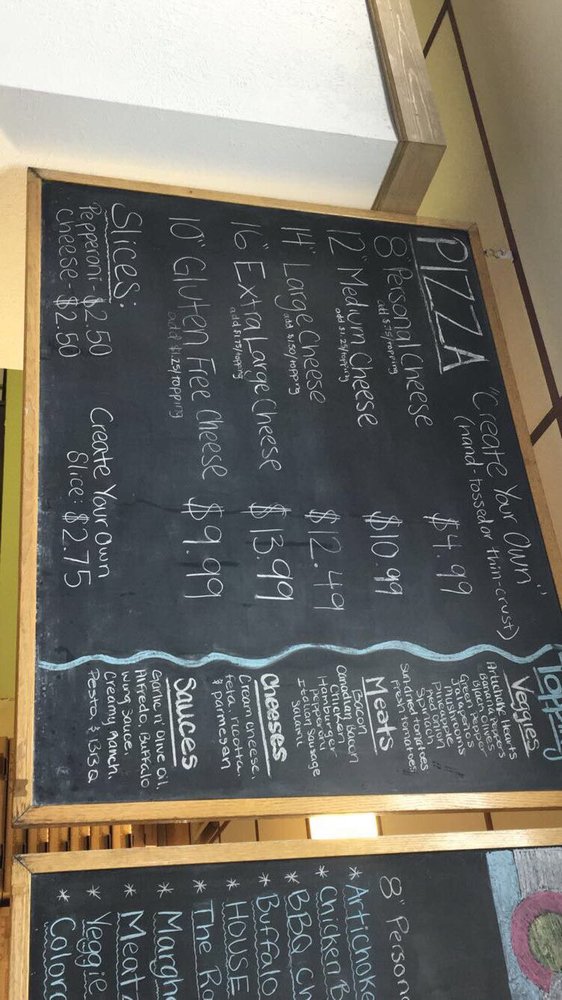 PIZZA
"Create Your Own"
(hand tossed or thin-crust)
8" Personal Cheese $4.99
add $.75/topping
12" Medium Cheese $10.99
add $1.25/topping
14" Large Cheese $12.49
add $1.50/topping
16" Extra Large Cheese $13.99
add $1.75/topping
10" Gluten Free Cheese $9.99
add $1.25/topping
Slices:
Pepperoni - $2.50
Cheese - $2.50
Create Your Own
Slice: $2.75
Topping
Veggies
Artichoke Hearts
Banana Peppers
Black Olives
Green Pepper
Jalapeños
Mushrooms
Pineapple
Red Onion
Spinach
Sundried tomatoes
Fresh tomatoes
Meats
Bacon
Canadian Bacon
Chicken
Hamburger
Pepperoni
Italian Sausage
Salami
Cheeses
Cream cheese,
feta, ricotta,
& parmesan
Sauces
Garlic n' Olive Oil,
Alfredo, Buffalo
Wing Sauce,
Creamy Ranch,
Pesto, & BBQ
8" Person
* Artichoke
* Chicken B
* BBQ Ch
* Buffalo
* HOUSE
* The Ro
* Margh
* Meat
* Veggie
* Colora